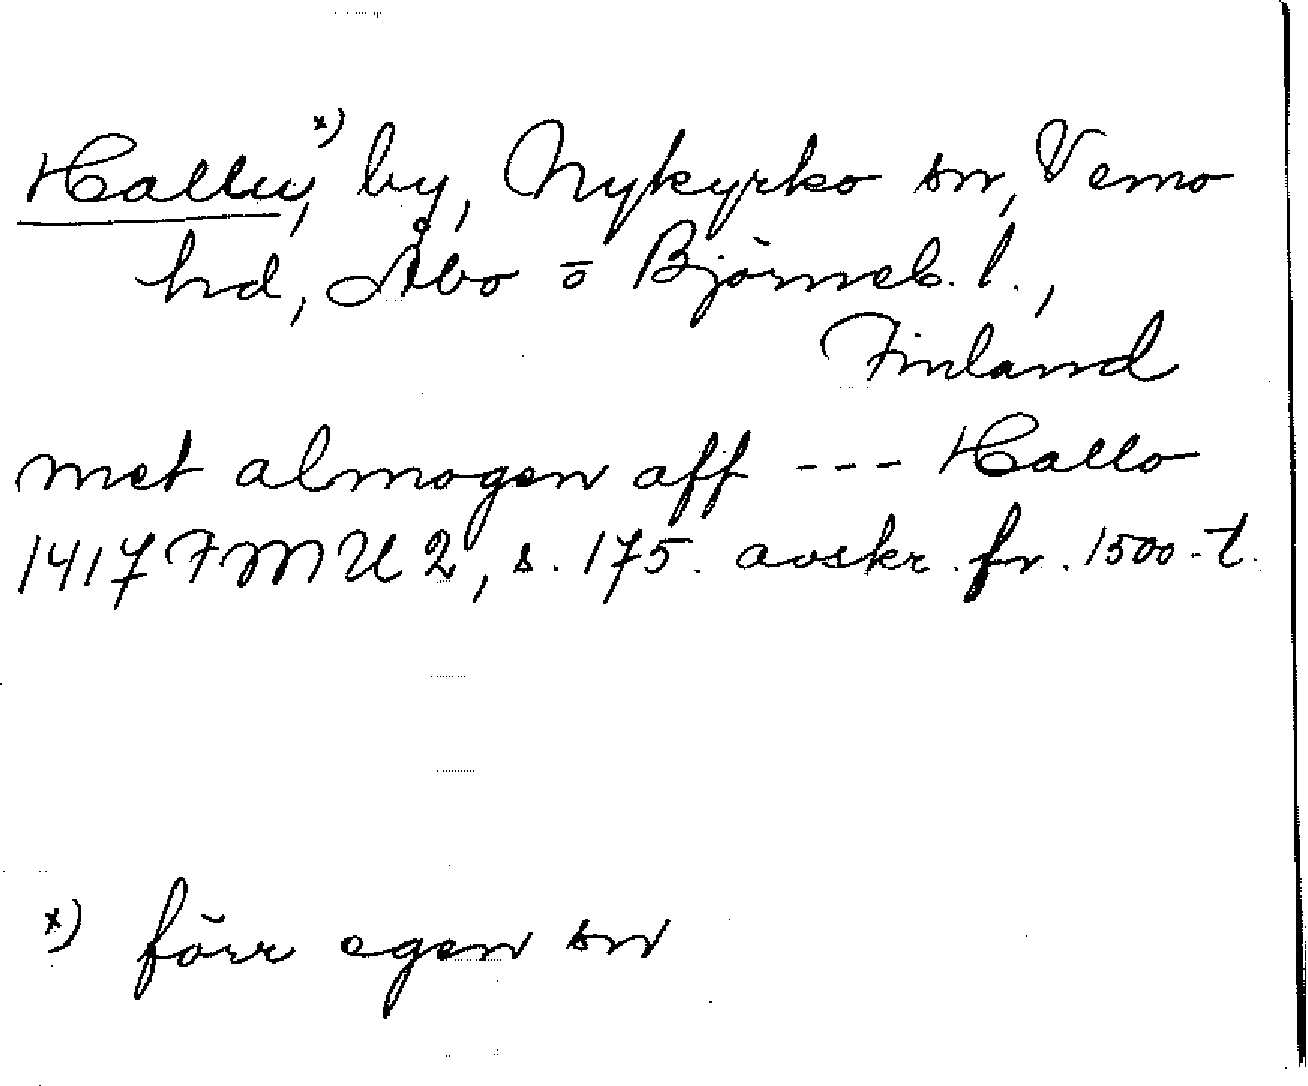 Hallu,ˣ⁾ by, Nykyrko sn, Vemo
hd, Åbo o Björneb. l.,
Finland
met almogen aff --- Hallo
1417 FMU 2, s. 175. avskr. fr. 1500-t.
x) förr egen sn